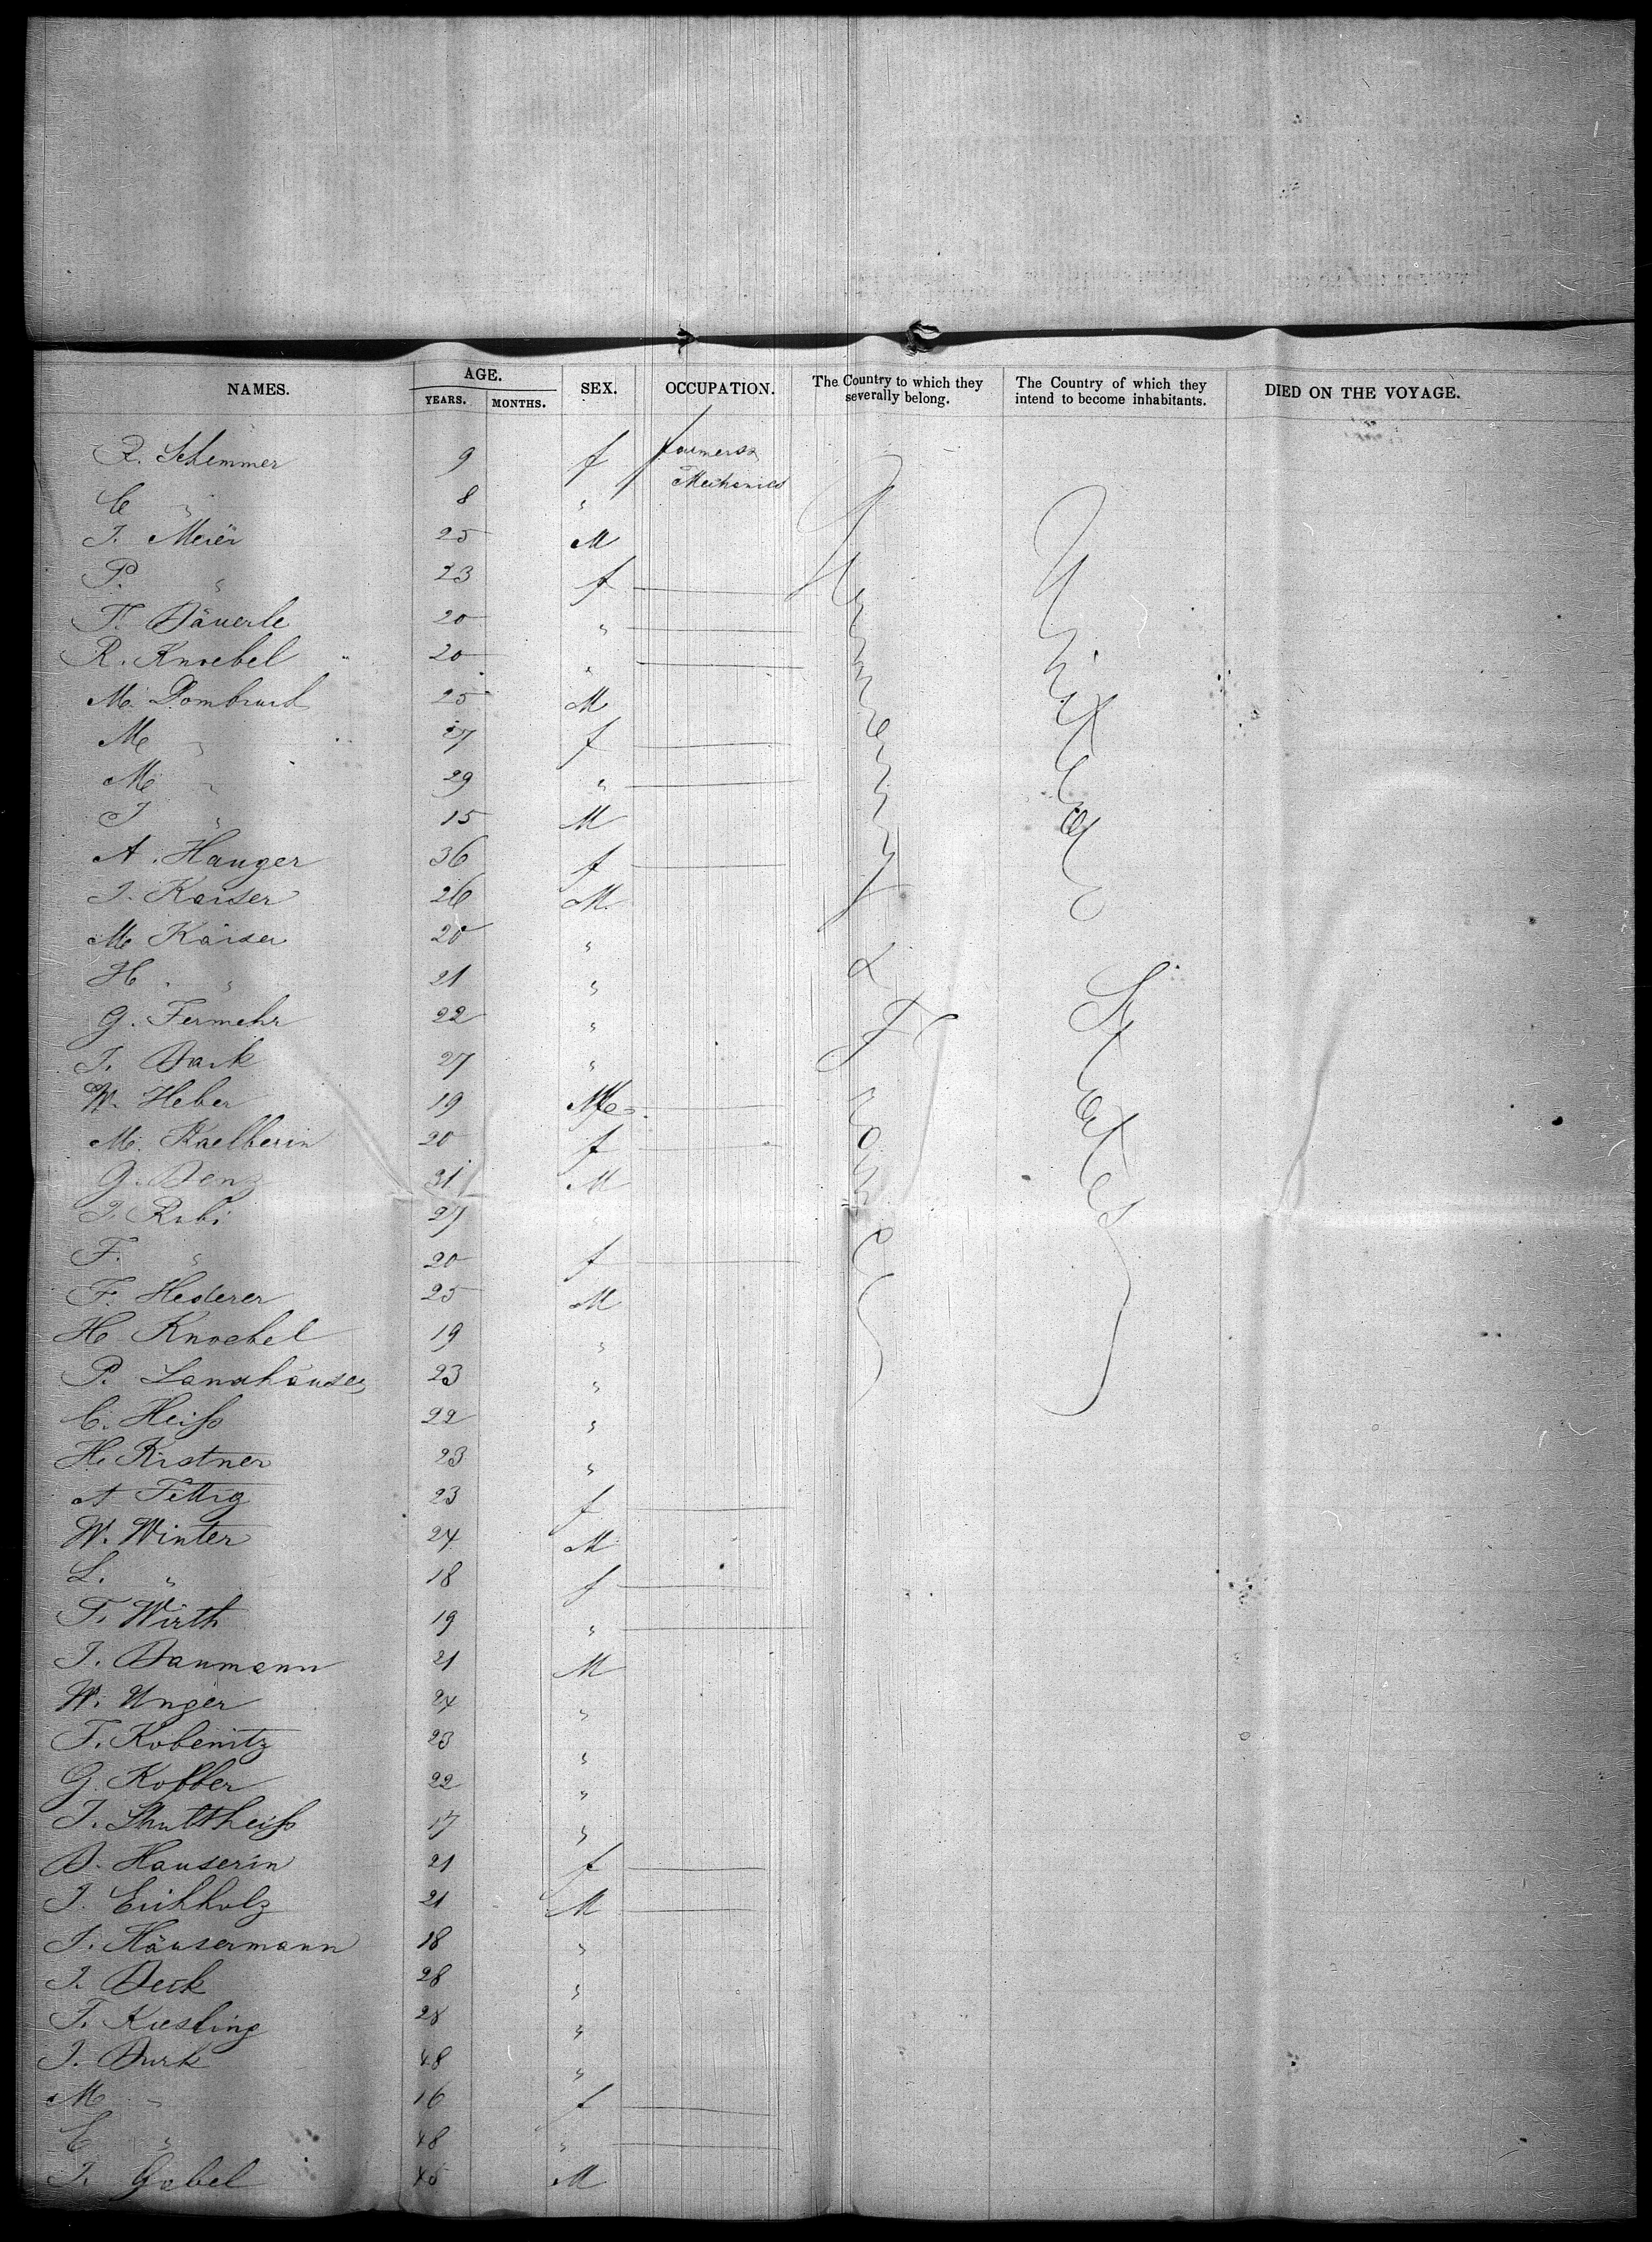 NAMES. AGE. YEARS. MONTHS. SEX. OCCUPATION. The Country to which they severally belong. The Country of which they intend to become inhabitants. DIED ON THE VOYAGE.
R. Schemmer 9 f farmers & Mechanics Germany & France United States
C " 8 "
J. Meier 25 M
P. " 23 f
F. Däuerle 20 "
R. Knoebel 20 "
M. Dombruch 25 M
M " 27 f
M " 29 "
J " 15 M
A. Hauger 36 f
J. Kaiser 26 M
M Kaiser 20 "
H. " 21 "
G. Fermehr 22 "
J. Back 27 "
W. Heber 19
M. Kaelberin 20 f
G. Benz 31 M
J. Rubi 27 "
F. " 20 f
F. Hederer 25 M
H Knoebel 19 "
P. Landhäuser 23 "
C. Heiss 22 "
H. Kistner 23 "
A Fettig 23 f
W. Winter 24 M
L. " 18 f
F. Wirth 19 "
J. Baumann 21 M
W. Unger 24 "
F. Kobenitz 23 "
G. Kobber 22 "
J. Shultheiss 17 "
B. Hauserin 21 f
J. Eichholz 21 M
J. Häusermann 18 "
J. Beck 28 "
F. Kiesling 28 "
J. Burk 48 "
M " 16 f
C " 48 "
J. Gobel 45 M